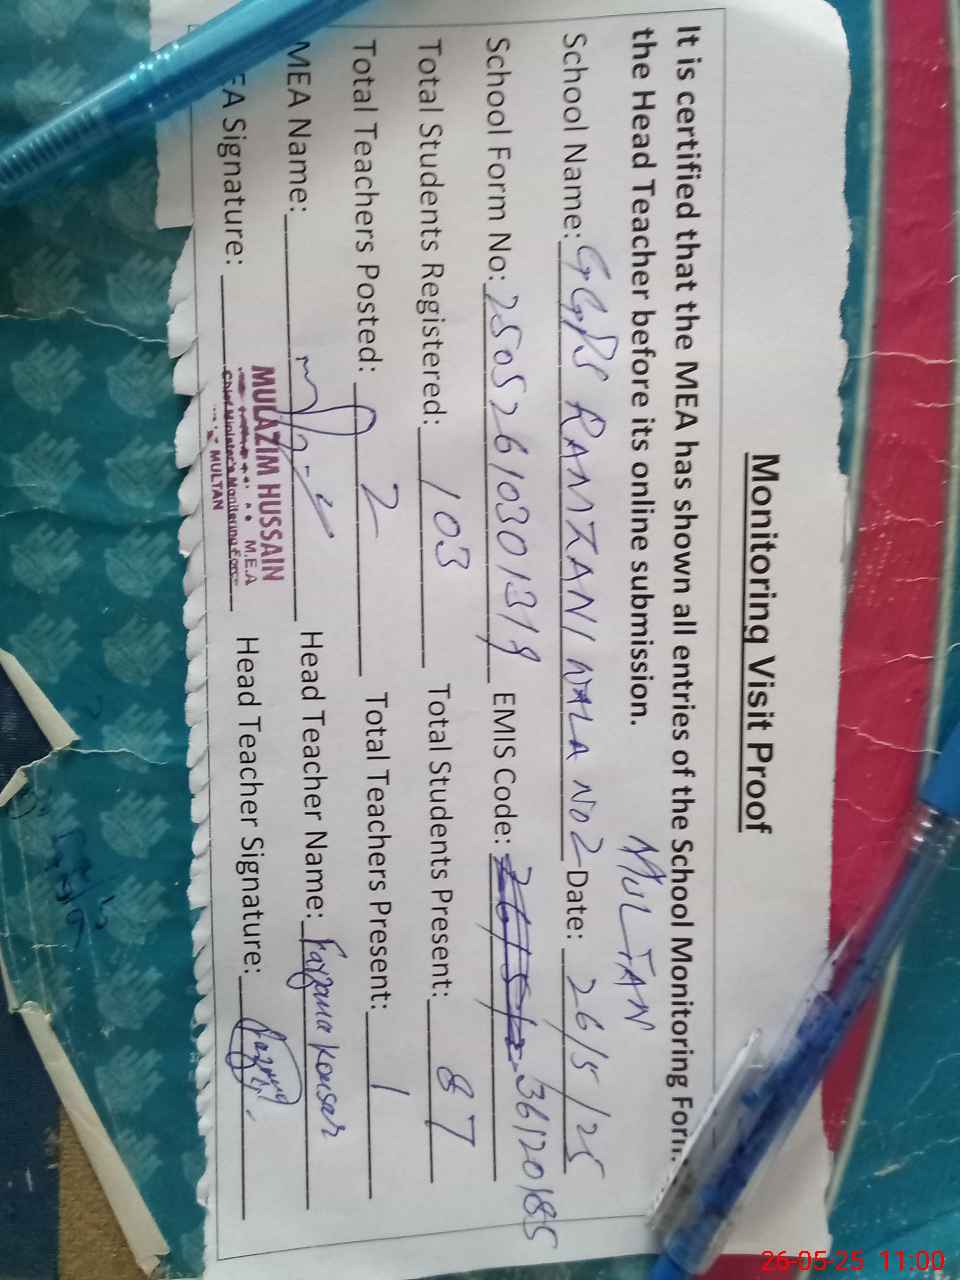 Monitoring Visit Proof
It is certified that the MEA has shown all entries of the School Monitoring Form.
the Head Teacher before its online submission.
MULTAN
School Name: GGPS RAMZANI WALA NO2 Date: 26/5/25
School Form No: 25052610301319 EMIS Code: 36120185
Total Students Registered: 103 Total Students Present: 87
Total Teachers Posted: 2 Total Teachers Present: 1
MEA Name: Head Teacher Name: Farzana Kousar
EA Signature: Head Teacher Signature:
MULAZIM HUSSAIN
M.E.A
Chief Minister's Monitoring Force
MULTAN
26-05-25 11:00